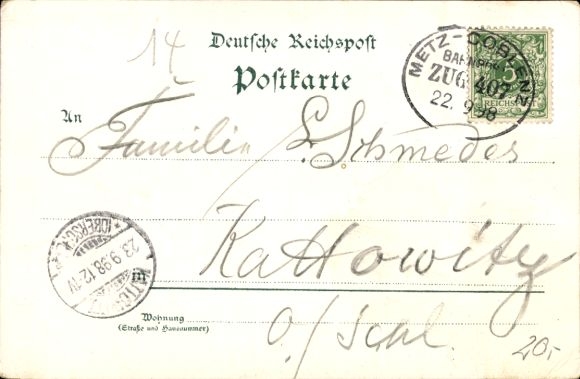 14
Deutsche Reichspost
Postkarte
METZ-COBLENZ
BAHNPOST
ZUG 407
22. 9.98
5
REICHSPOST
An
Familie L. Schmedes
Kattowitz
(OBERSCHL.)
23.9.98.12-1V
in
Wohnung
(Straße und Hausnummer)
O./Schl.
20,-